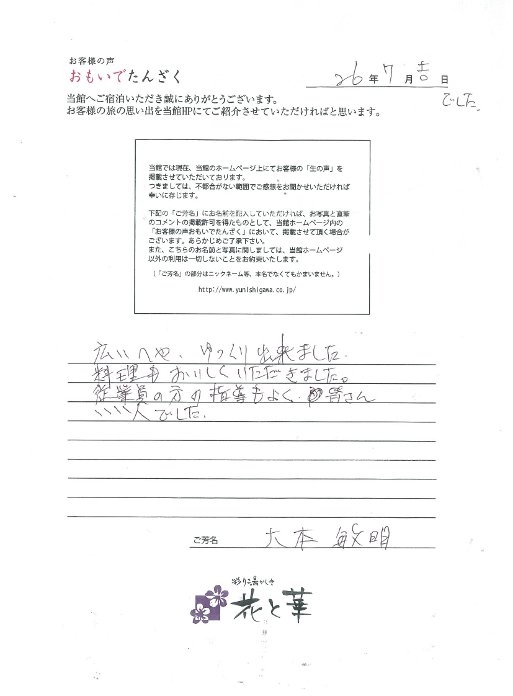 お客様の声
おもいでたんざく
26年7月吉日
でした。
当館へご宿泊いただき誠にありがとうございます。
お客様の旅の思い出を当館HPにてご紹介させていただければと思います。
当館では現在、当館のホームページ上にてお客様の「生の声」を
掲載させていただいております。
つきましては、不都合がない範囲でご感想をお聞かせいただければ
幸いに存じます。
下記の「ご芳名」にお名前を記入していただければ、お写真と直筆
のコメントの掲載許可を得たものとして、当館ホームページ内の
「お客様の声おもいでたんざく」において、掲載させて頂く場合が
ございます。あらかじめご了承下さい。
また、こちらのお名前と写真に関しましては、当館ホームページ
以外の利用は一切しないことをお約束いたします。
(「ご芳名」の部分はニックネーム等、本名でなくてもかまいません。)
http://www.yunishigawa.co.jp/
広いへや、ゆっくり出来ました。
料理もおいしくいただきました。
従業員の方の指導もよく、皆さん
いい人でした。
ご芳名 大本 敏明
彩り湯かしき
花と華